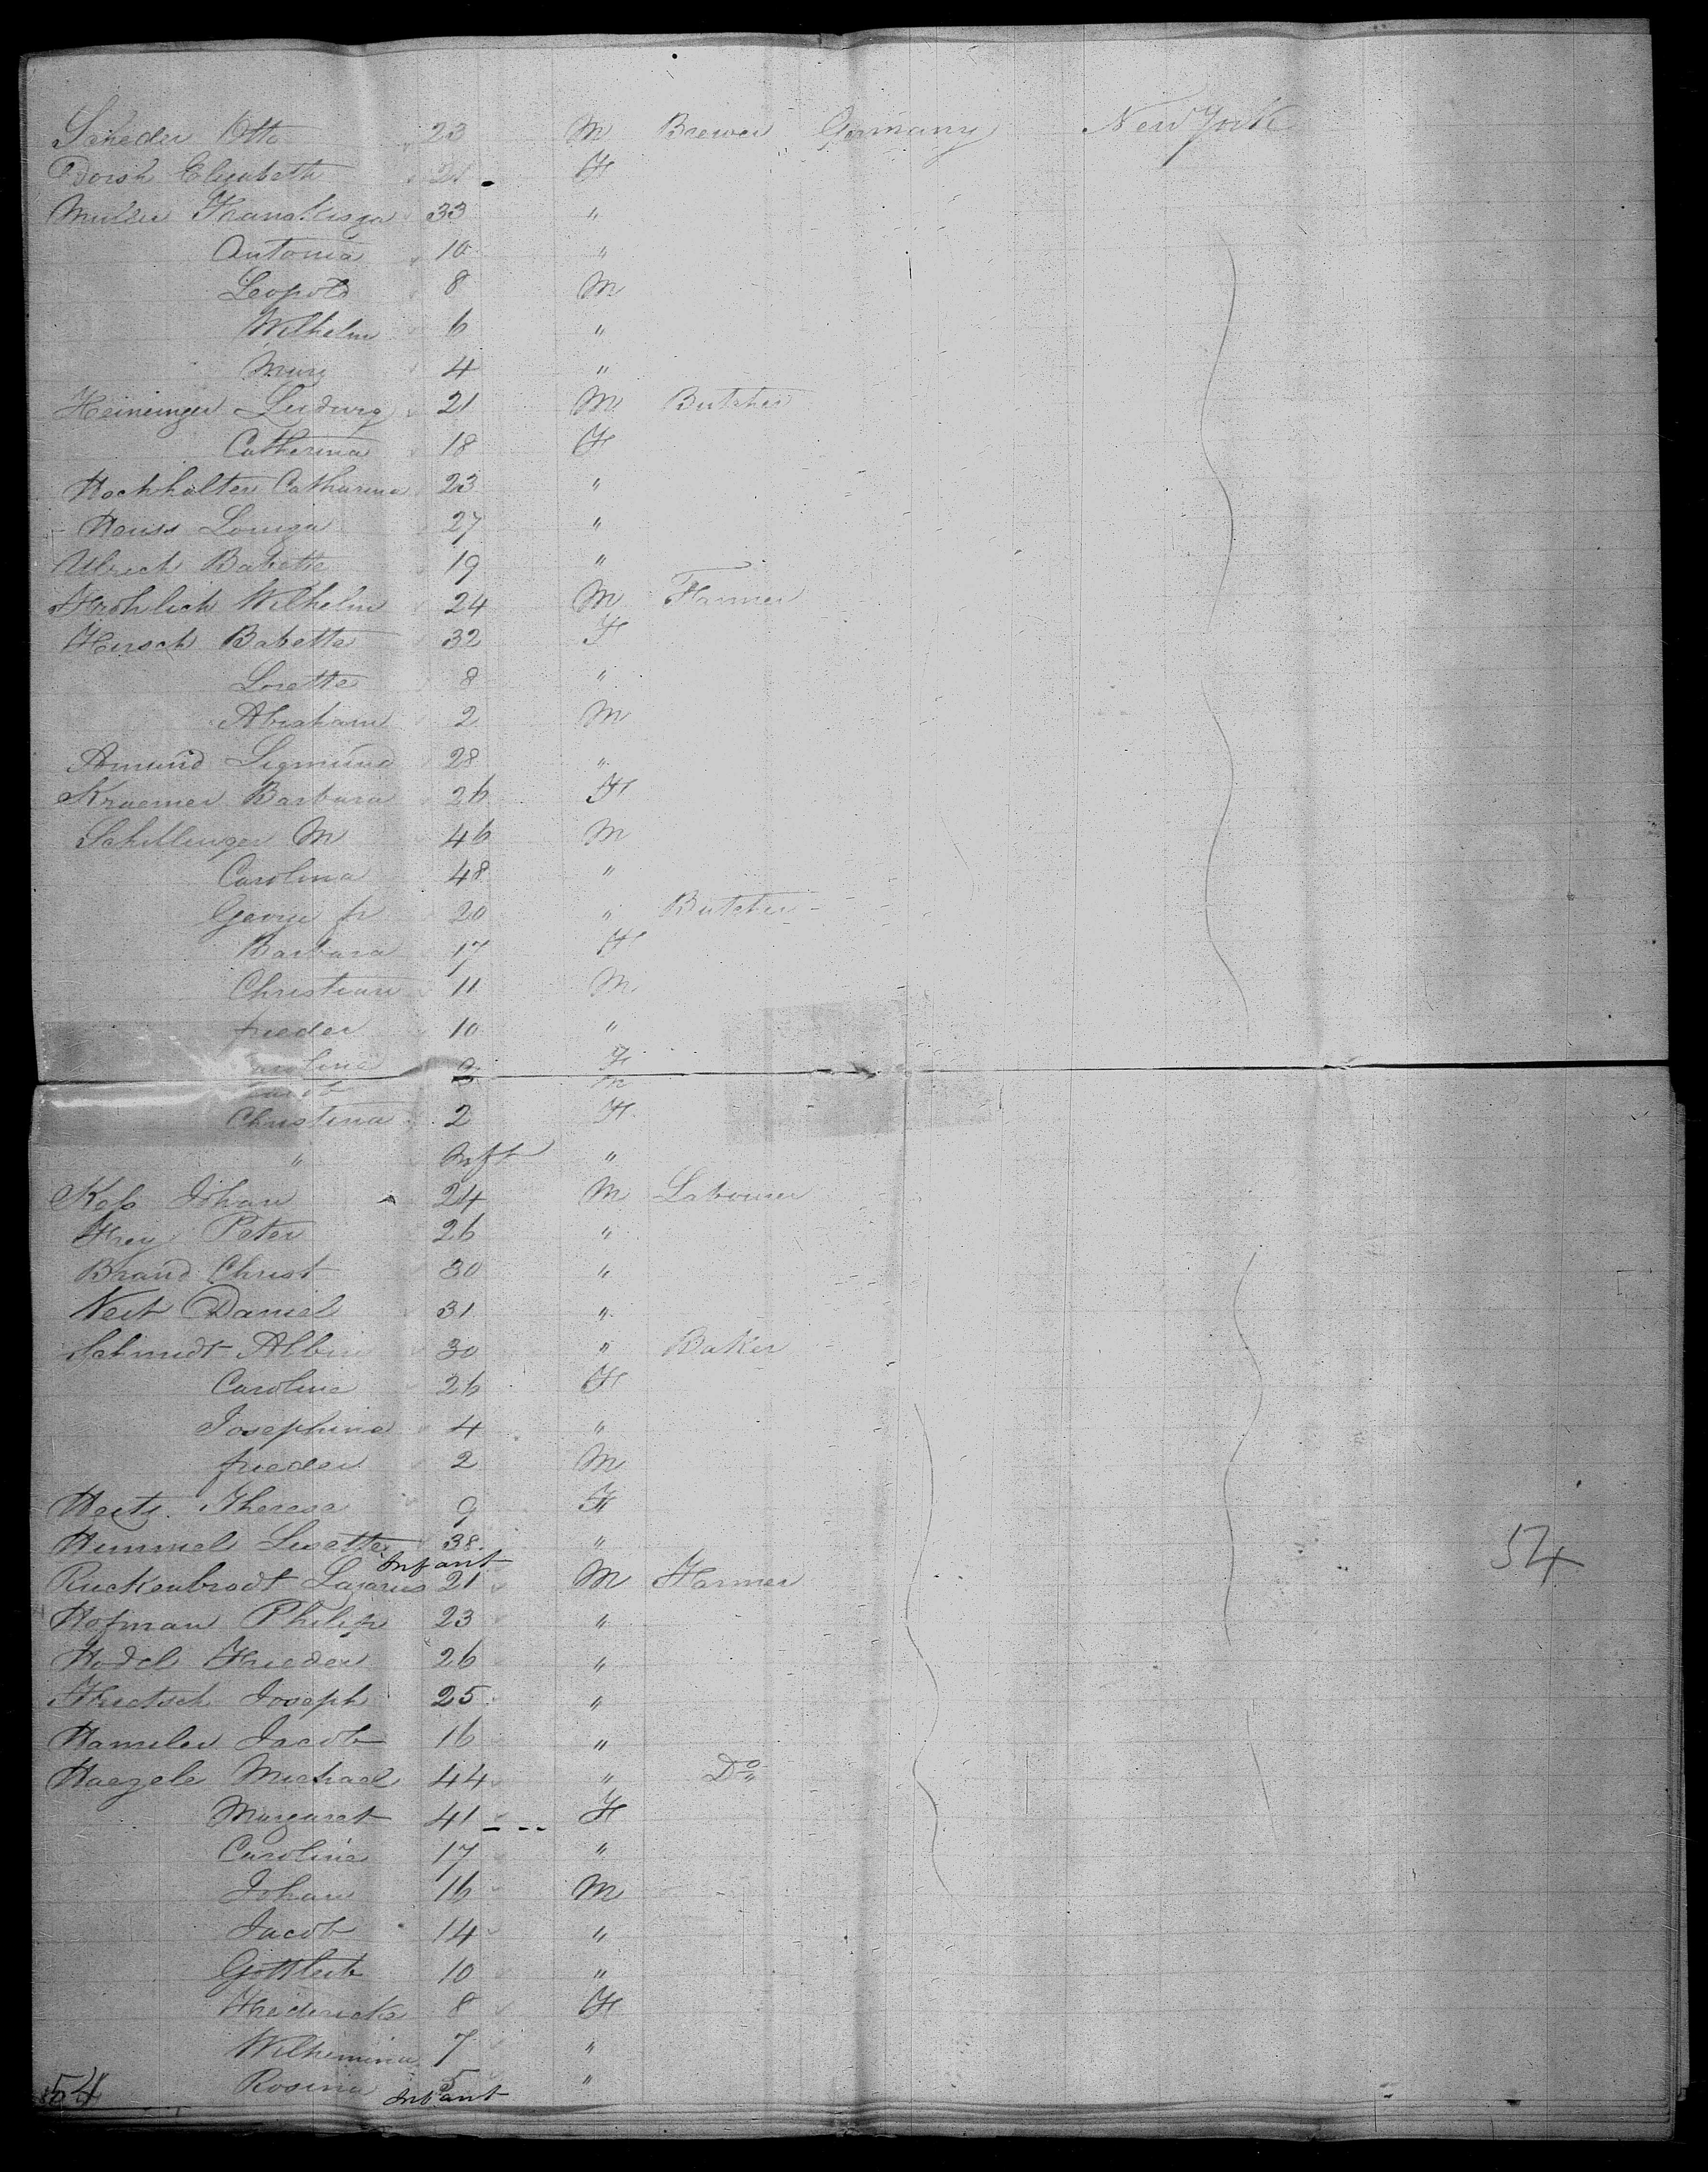 Scheder Otto 23 M Brewer Germany New York
Dorsh Elisabeth 21 F
Muller Franskisga 33 "
Antonia 10 "
Leopold 8 M
Wilhelm 6 "
Mary 4 "
Heininger Ludwig 21 M Butcher
Catherina 18 F
Hochhalter Catharina 23 "
Heuss Louisa 27 "
Ulrich Babette 19 "
Frohlich Wilhelm 24 M Farmer
Hirsch Babette 32 F
Lorette 8 "
Abraham 2 M
Amund Sigmund 28 "
Kraemer Barbara 26 F
Schillinger M 46 M
Carolina 48 "
George fr 20 " Butcher
Barbara 17 F
Christian 11 M
frieder 10 "
F
M
Christina 2 F
" Inft "
Kols Johan 24 M Labourer
Frey Peter 26 "
Brand Christ 30 "
Neit Daniel 31 "
Schmidt Albin 30 " Baker
Caroline 26 F
Josephine 4 "
frieder 2 M
Theresa 9 F
Himmel Lisette 38 "
Infant
Ruckenbrodt Lazarus 21 M Farmer
Hofman Philip 23 "
Hodel Frieder 26 "
54
Frietsch Joseph 25 "
Hamiler Jacob 16 "
Haegele Michael 44 " Do
Margaret 41 F
Caroline 17 "
Johan 16 M
Jacob 14 "
Gottlieb 10 "
Fredericka 8 F
Wilhemina 7 "
Rosina 5 "
54 Infant